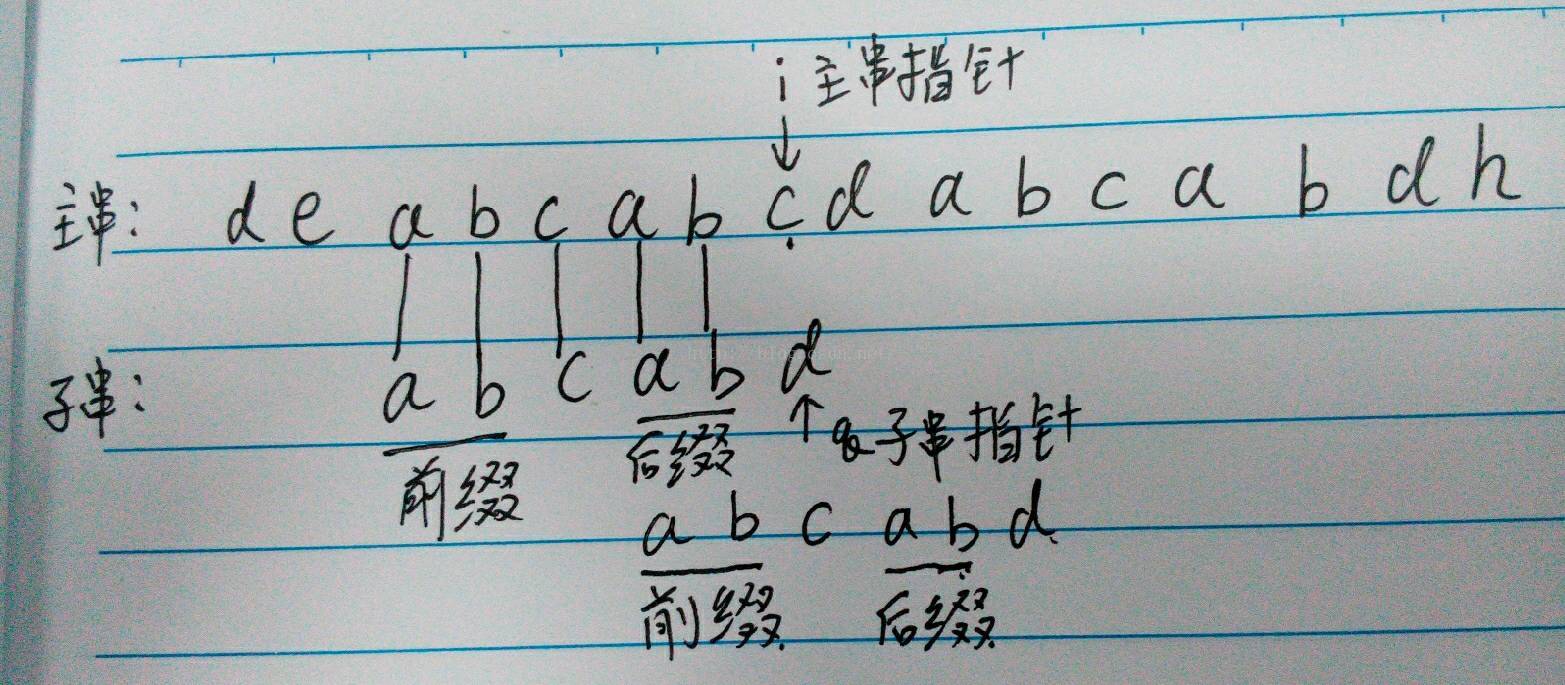 i 主串指针
主串: d e a b c a b c d a b c a b d h
子串: a b c a b d
子串指针
前缀 后缀
a b c a b d
前缀 后缀